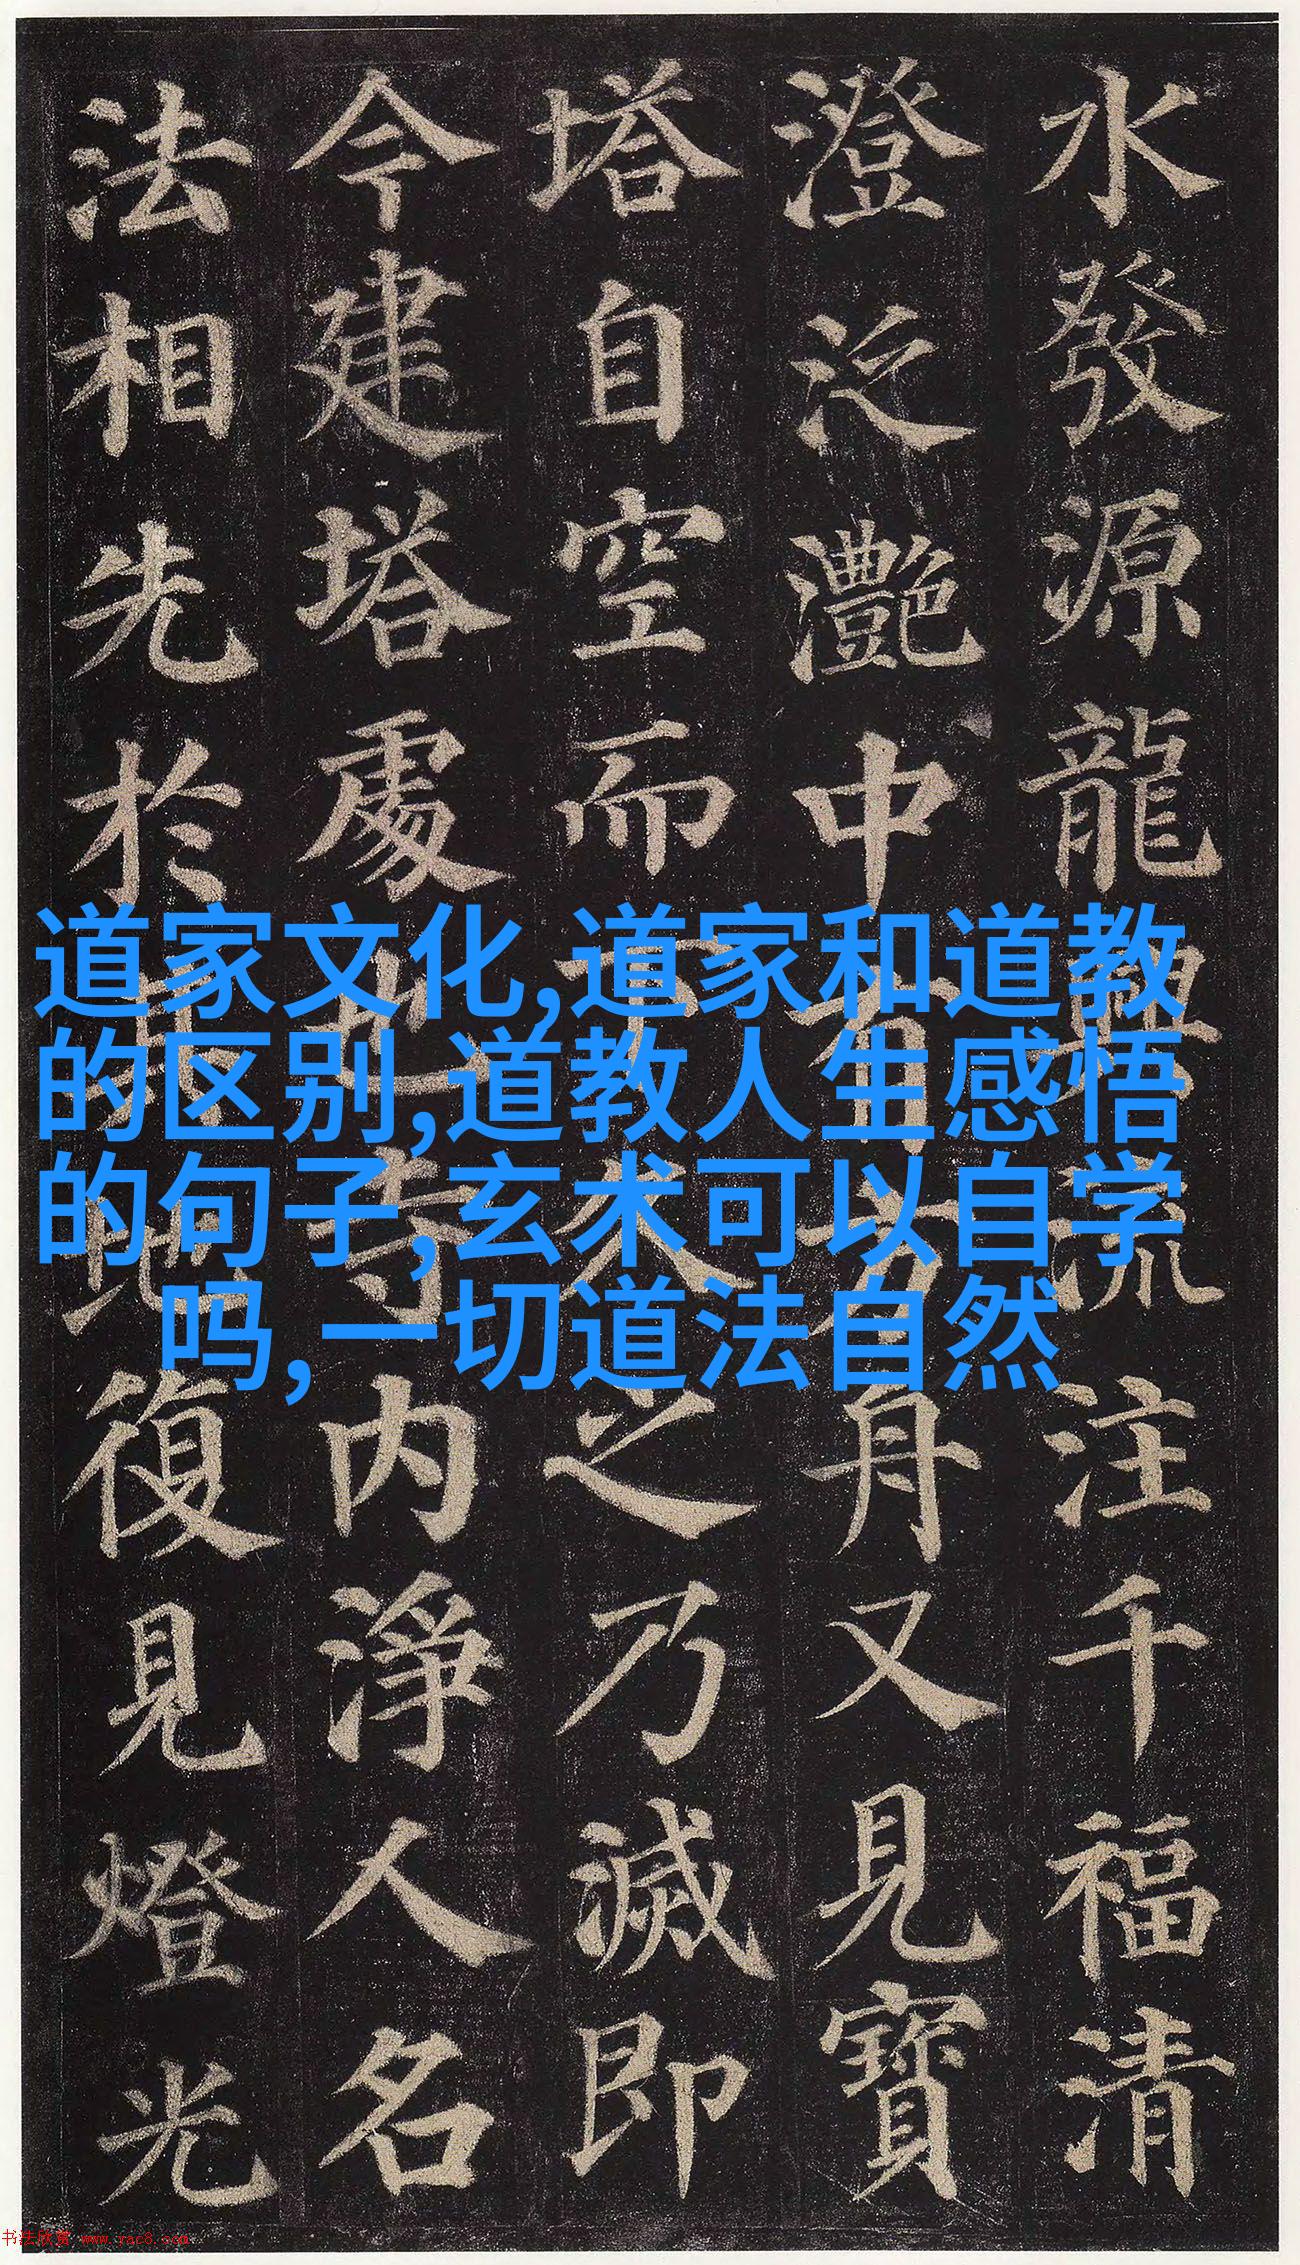 水發源龍興流注千福清
澄泛灩中有方舟又見寶
塔自空而下久之乃滅即
今建塔處也寺内淨人名
法相先於其地復見燈光
道家文化,道家和道教
的区别,道教人生感悟
的句子,玄术可以自学
吗,一切道法自然
书法欣赏 www.yac8.com